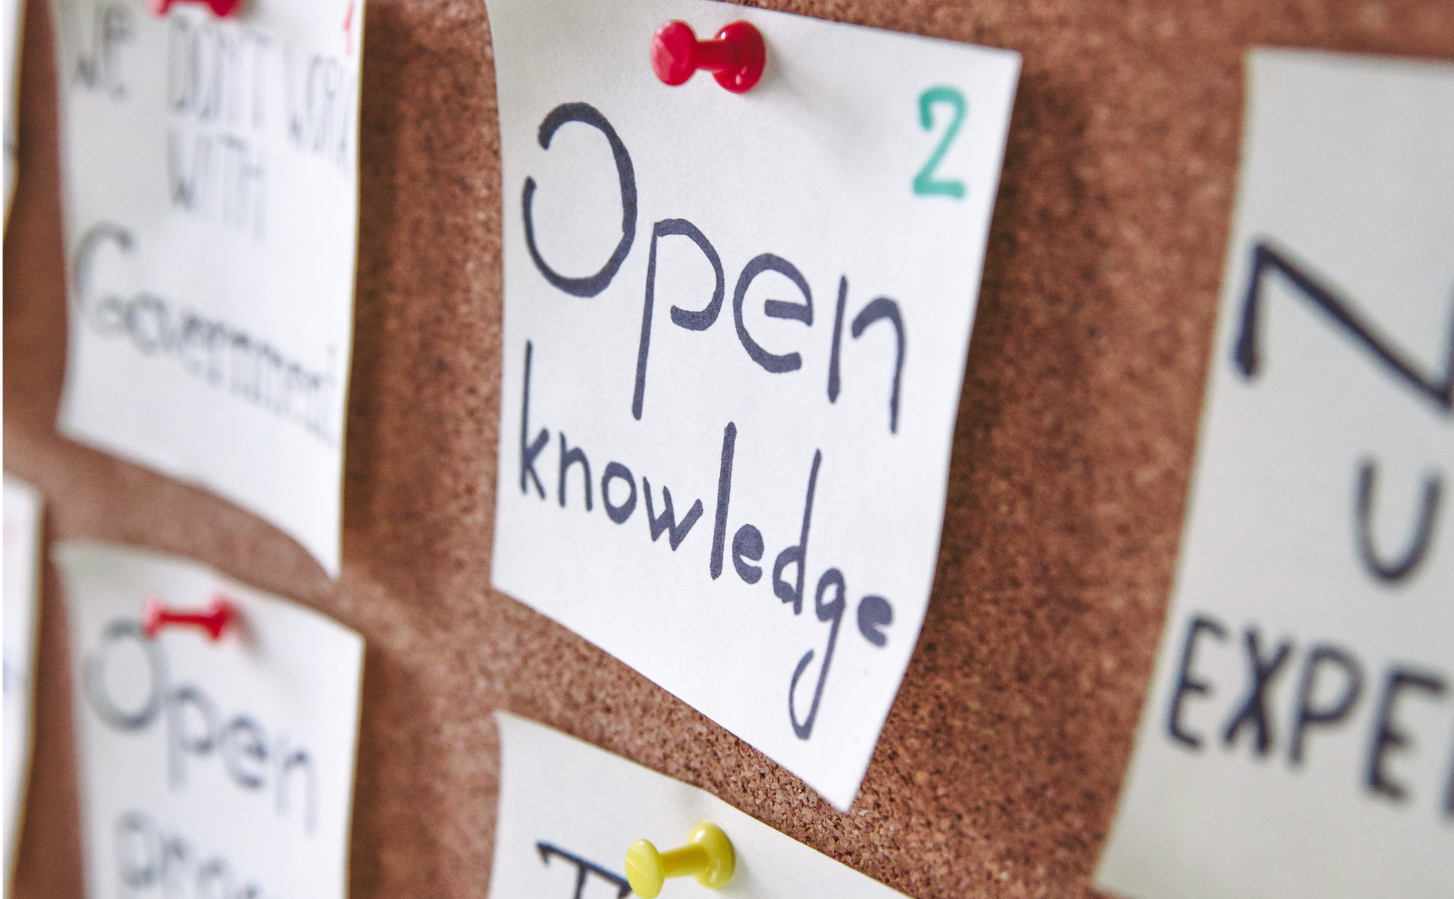 We DON'T WORK
WITH
Government
2
Open
knowledge
Open
N
U
EXPE